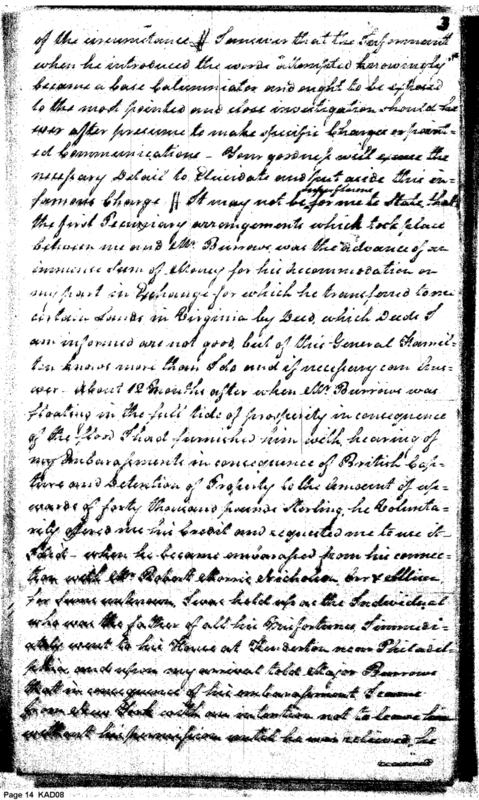 3
of the circumstance // I answer that the Informant
when he introduced the words "attempted knowingly"
became a base Calumniator and ought to be exposed
to the most pointed and close investigation should he
ever after presume to make specific Charges or point-
ed Communications – Your goodness will excuse the
necessary Detail to Elucidate and put aside this in-
famous Charge // It may not be for me to State, that
the first Pecuniary arrangements which took place
between me and Mr. Burrows was the advance of an
immence Sum of Money for his accommodation on
my part in Exchange for which he transferred to me
certain Lands in Virginia by Deed, which Deeds I
am informed are not good, but of this General Hamil-
ton knows more than I do and if necessary can Ans-
wer – About 12 Months after when Mr. Burrows was
floating in the full tide of prosperity in consequence
of the flood I had furnished him with, hearing of
my Embarassments in consequence of British Cap-
ture and Detention of Property to the Amount of up-
wards of forty thousand pounds Sterling, he Volunta-
rily offered me his Credit and requested me to use it
I did – when he became embarassed from his connec-
tion with Mr. Robert Morris Nicholson &
for some unknown, I was held up as the Individual
who was the father of all his Misfortunes, I immedi-
ately went to his House at Kinderton near Philadel-
phia and upon my arrival told Major Burrows
that in consequence of his embarassment I came
from New York with an intention not to leave him
without his permission until he was relieved, he